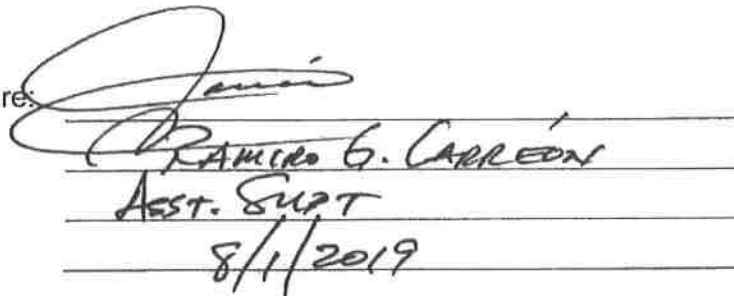 re:
RAMIRO G. CARREÓN
ASST. SUPT
8/1/2019